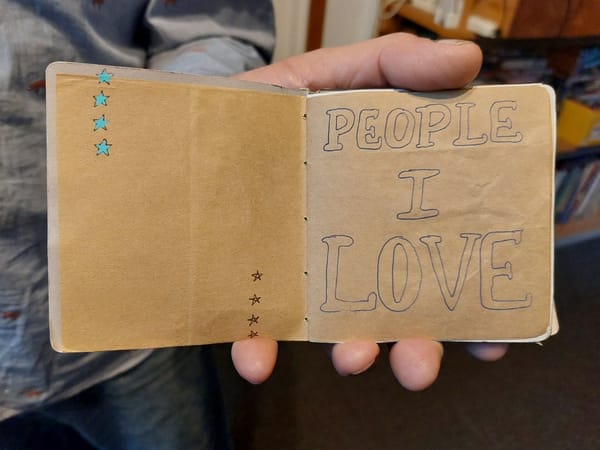 PEOPLE
I
LOVE